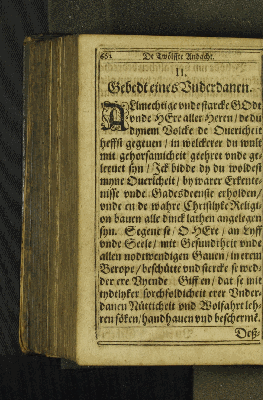 De Twölffte Andacht.
II.
Gebedt eines Vnderdanen.
ALmechtige vnde starcke GOdt
vnde HEre aller Heren / de du
dynem Volcke de Ouericheit
heffst gegeuen / in welckerer du wult
mit gehorsamicheit geehret vnde ge-
leenet syn / Jck bidde dy du woldest
myne Ouericheit / by warer Erkente-
nisse vnde Gadesdenste erholden /
vnde en de wahre Christlyke Religi-
on bauen alle dinck lathen angelegen
syn. Segene se / O HErr / an Lyff
vnde Seele / mit Gesundtheit vnde
allen nodtwendigen Gauen / in erem
Berope / beschütte vnde stercke se wed-
der ere Vyende. Giff en / dat se mit
tydtlyker sorchfoldicheit erer Vnder-
danen Nütticheit vnd Wolfahrt leh-
ren söken / handhauen vnd beschermē.
Deß-